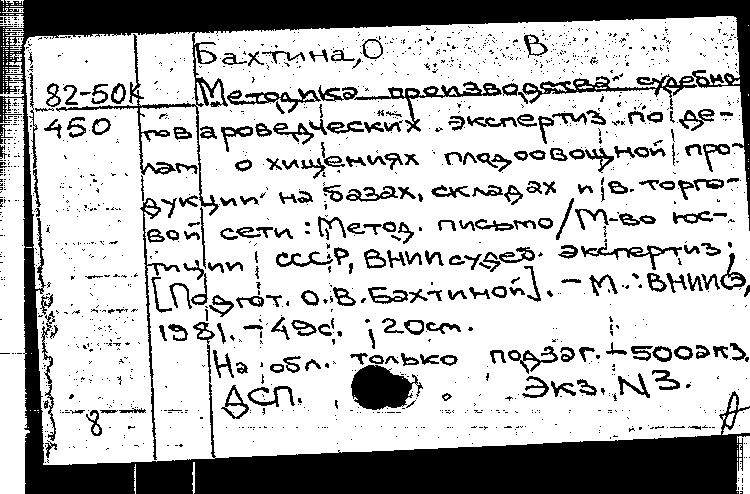 Бахтина, О В
82-50К Методика производства судебно
450 товароведческих экспертиз по де-
лам о хищениях плодоовощной про-
дукции на базах, складах и в торго-
вой сети : Метод. письмо / М-во юс-
тиции СССР, ВНИИ судеб. экспертиз;
[Подгот. О. В. Бахтиной]. - М. : ВНИИСЭ,
1981. - 49с. ; 20см.
На обл. только подзаг. - 500экз.
ДСП. Экз. N3.
8